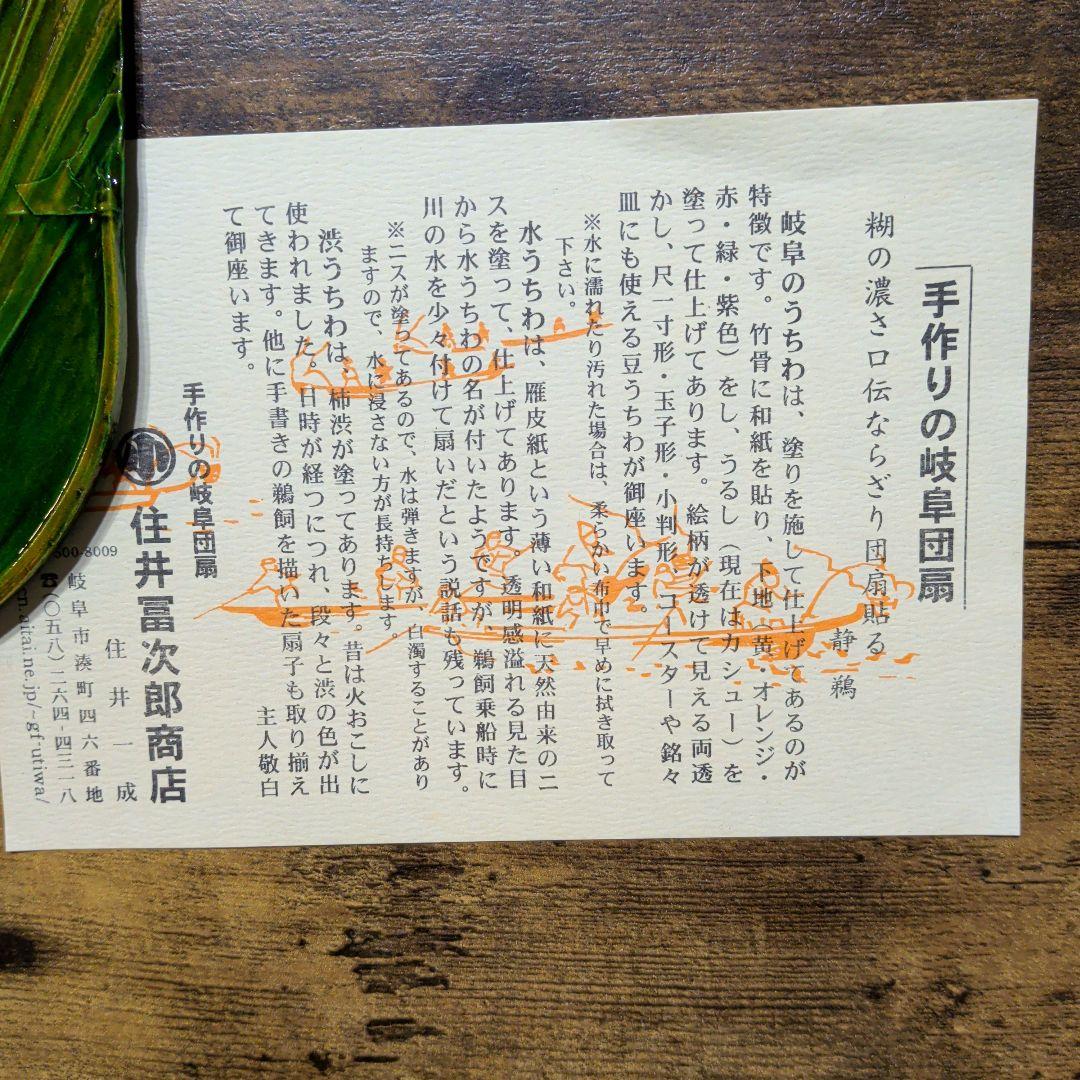 手作りの岐阜団扇
糊の濃さ口伝ならざり団扇貼る
静鵜
岐阜のうちわは、塗りを施して仕上げてあるのが
特徴です。竹骨に和紙を貼り、下地（黄・オレンジ・
赤・緑・紫色）をし、うるし（現在はカシュー）を
塗って仕上げてあります。絵柄が透けて見える両透
かし、尺一寸形・玉子形・小判形、コースターや銘々
皿にも使える豆うちわが御座います。
※水に濡れたり汚れた場合は、柔らかい布巾で早めに拭き取って
下さい。
水うちわは、雁皮紙という薄い和紙に天然由来のニ
スを塗って、仕上げてあります。透明感溢れる見た目
から水うちわの名が付いたようですが、鵜飼乗船時に
川の水を少々付けて扇いだという説話も残っています。
※ニスが塗ってあるので、水は弾きますが、白濁することがあり
ますので、水に浸さない方が長持ちします。
渋うちわは、柿渋が塗ってあります。昔は火おこしに
使われました。日時が経つにつれ、段々と渋の色が出
てきます。他に手書きの鵜飼を描いた扇子も取り揃え
て御座います。
主人敬白
手作りの岐阜団扇
住井冨次郎商店
住井一成
600-8009
岐阜市湊町四六番地
☎（〇五八）二六四-四三一八
.ne.jp/~gf-utiwa/